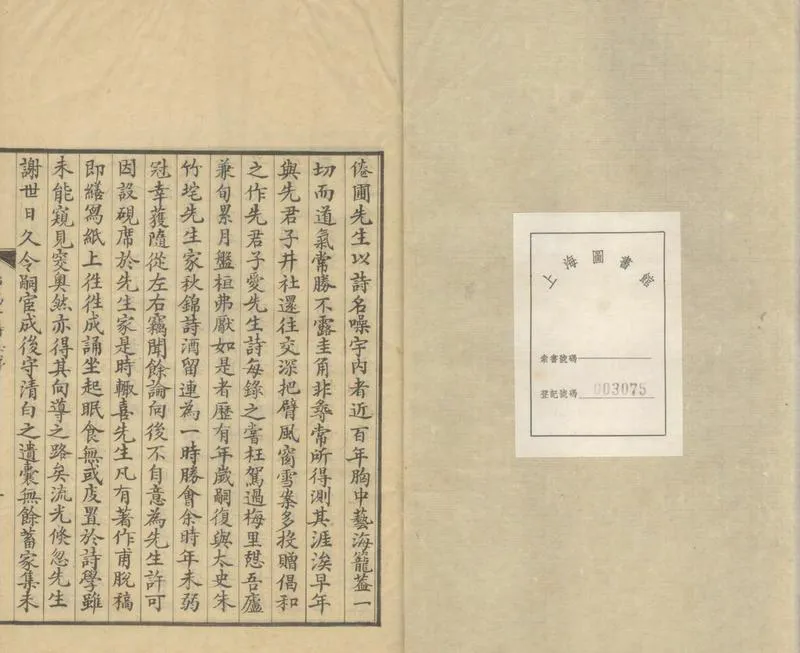 上海圖書館
索書號碼
登記號碼 003075
倦圃先生以詩名噪宇內者近百年胸中藝海籠蓋一
切而道氣常勝不露圭角非尋常所得測其涯涘早年
與先君子井社還往交深把臂風窗雪案多投贈倡和
之作先君子愛先生詩每錄之嘗枉駕過梅里憇吾廬
兼旬累月盤桓弗厭如是者歷有年歲嗣復與太史朱
竹垞先生家秋錦詩酒留連為一時勝會余時年未弱
冠幸獲隨從左右竊聞餘論向後不自意為先生許可
因設硯席於先生家是時輙喜先生凡有著作甫脫稿
即繕寫紙上徃徃成誦坐起眠食無或庋置於詩學雖
未能窺見突奧然亦得其向導之路矣流光倏忽先生
謝世日久令嗣宦成後守清白之遺囊無餘蓄家集未